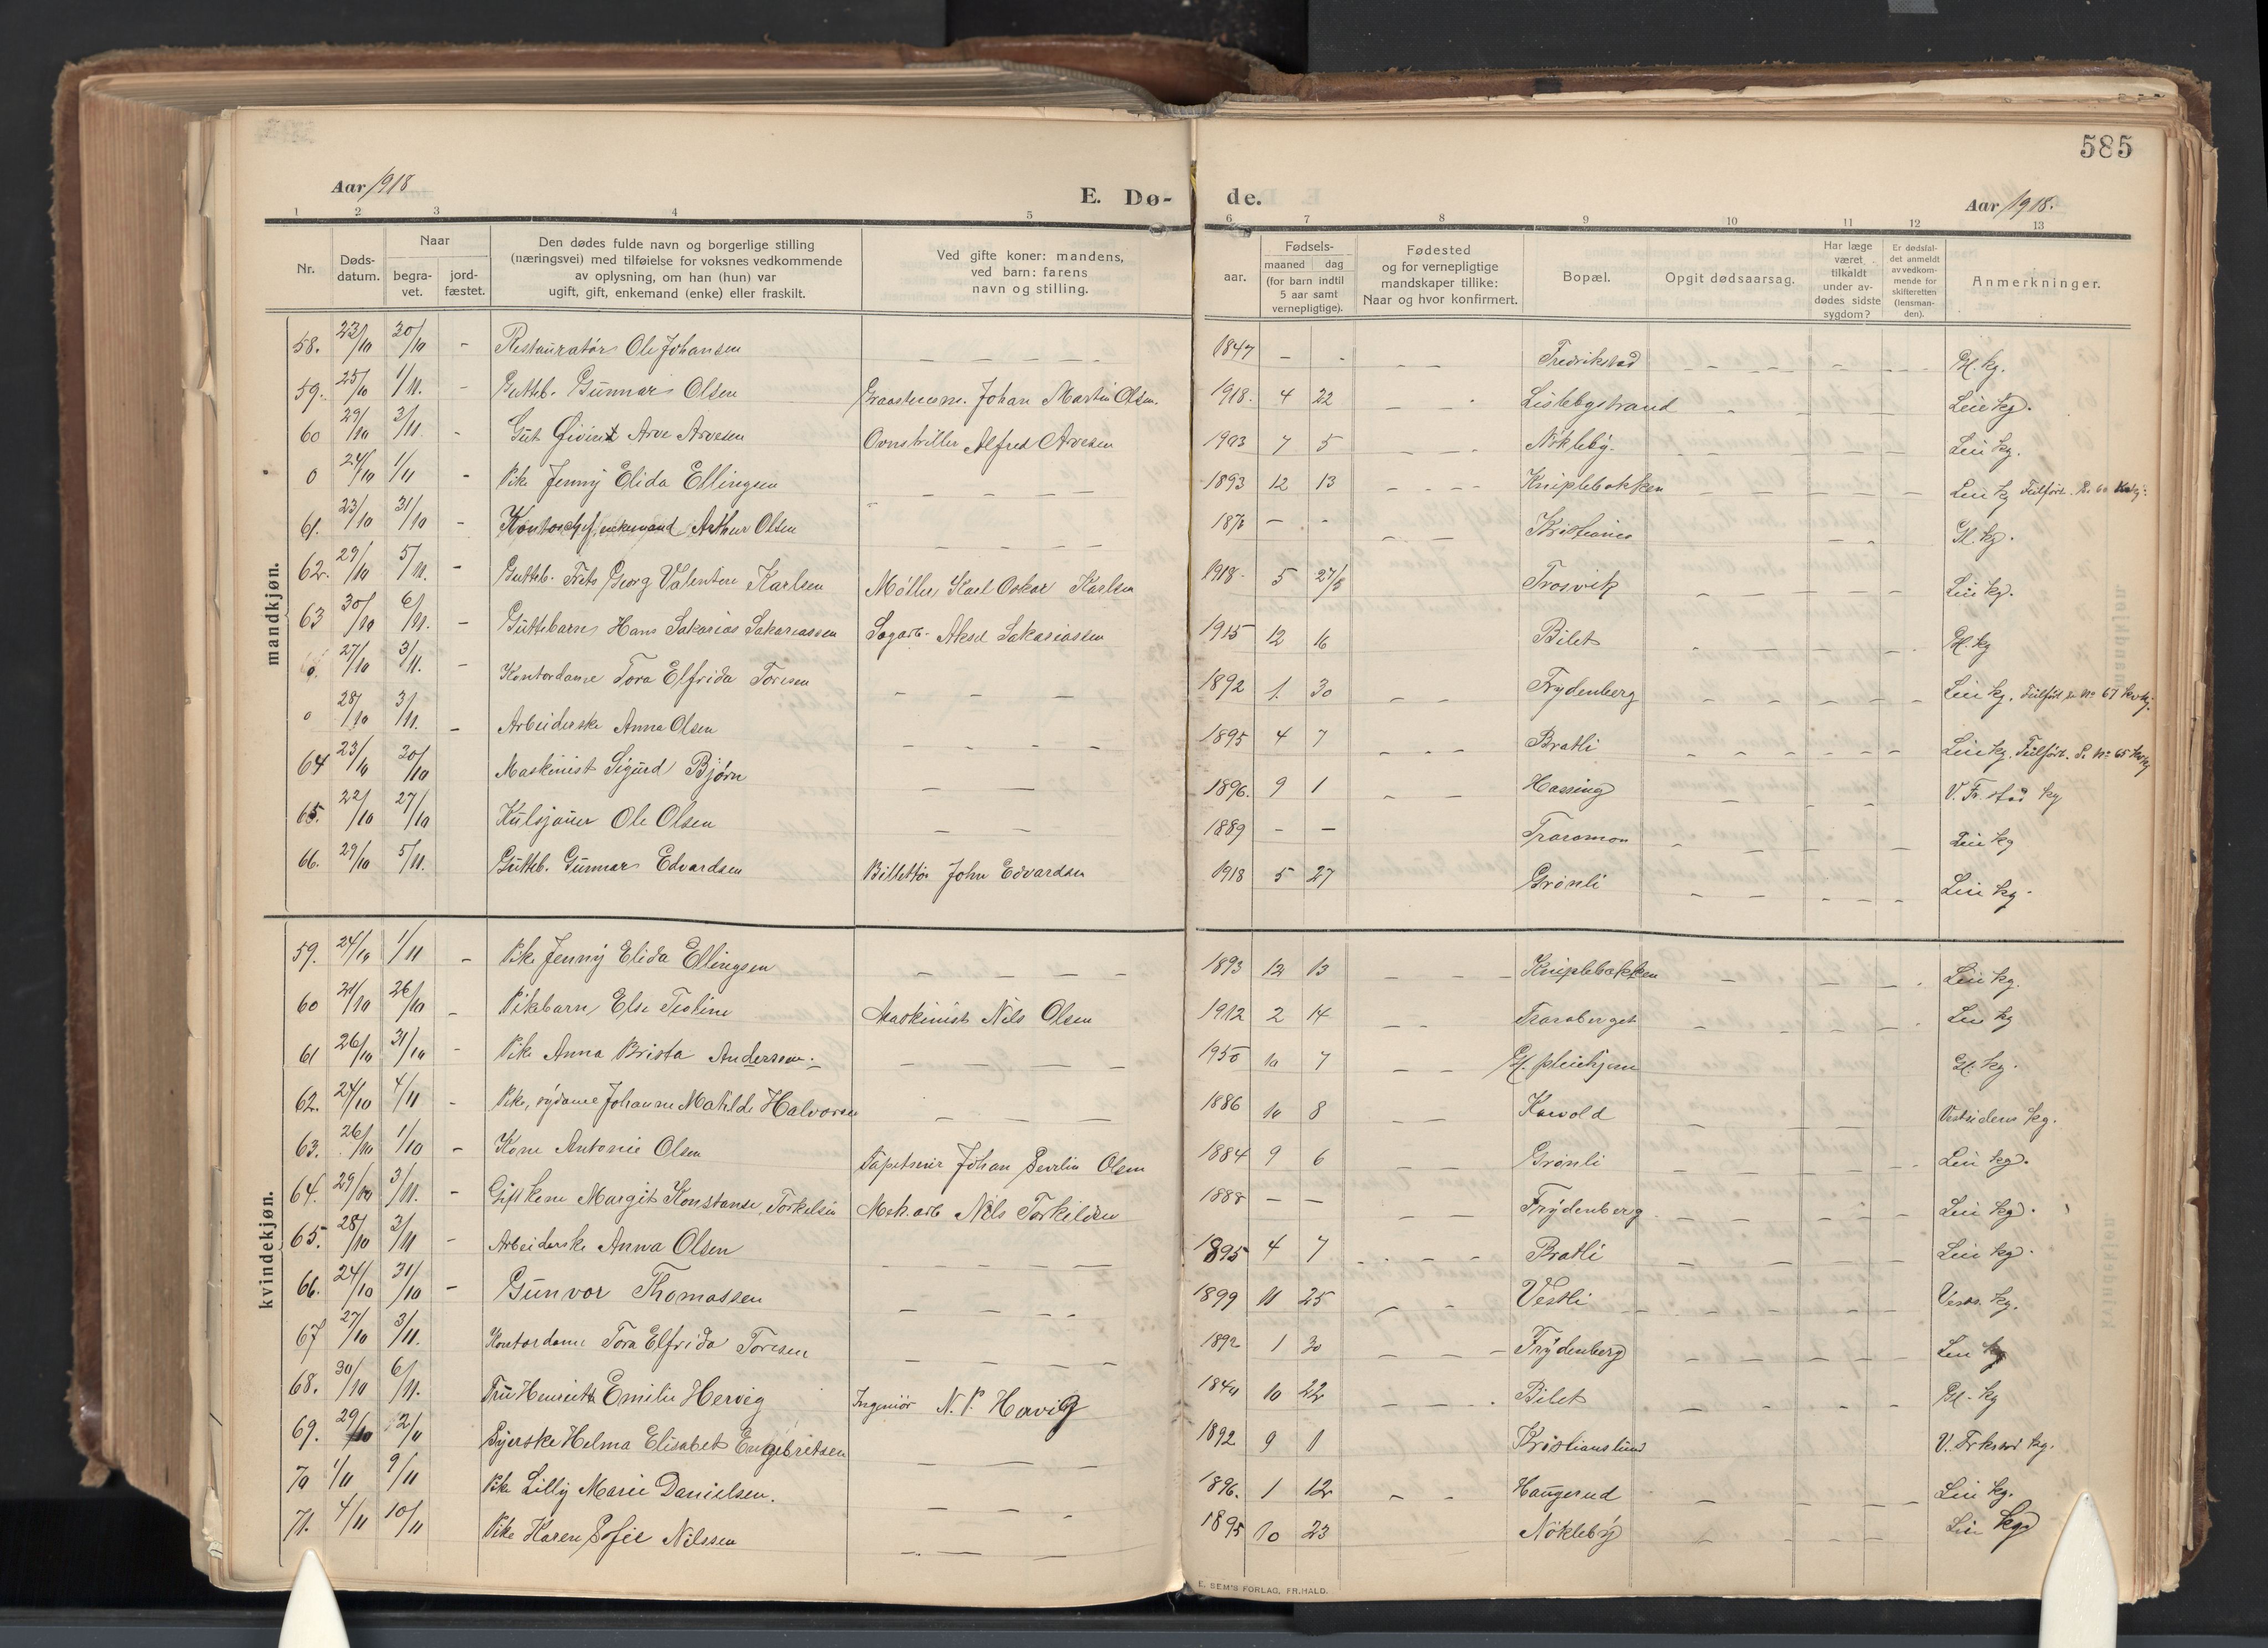 585
Aar 1918
E. Dø-
de.
Aar 1918.
1 2 3 4 5 6 7 8 9 10 11 12 13
Nr.
Døds-
datum.
Naar
begra-
vet.
jord-
fæstet.
Den dødes fulde navn og borgerlige stilling
(næringsvei) med tilføielse for voksnes vedkommende
av oplysning, om han (hun) var
ugift, gift, enkemand (enke) eller fraskilt.
Ved gifte koner: mandens,
ved barn: farens
navn og stilling.
aar.
Fødsels-
maaned dag
(for barn indtil
5 aar samt
vernepligtige).
Fødested
og for vernepligtige
mandskaper tillike:
Naar og hvor konfirmert.
Bopæl.
Opgit dødsaarsag.
Har læge
været
tilkaldt
under av-
dødes sidste
sygdom?
Er dødsfal-
det anmeldt
av vedkom-
mende for
skifteretten
(lensman-
den).
Anmerkninger.
mandkjøn.
58. 23/10 30/10 - Restauratør Ole Johansen - - - - - 1847 - - - - Fredrikstad - - - - Gl. kg.
59. 25/10 1/11. - Gutteb. Gunnar Olsen Johan Martin Olsen. 1918. 4 22 - - Lislebystrand - - - - Leie kg.
60 29/10 3/11. - Gut Øivind Arve Arvesen Alfred Arvesen 1903 7 5 Nøkleby. - - - - Leie kg.
0 24/10 1/11 - Pike Jenny Elida Ellingsen - - - - 1893 12 13 - - - Kniplebakken - - - - Leie kg
61. 23/10 31/10 - Kontorchef, enkemand Arthur Olsen - - - - - - - - Kristiania - - Gl. kg.
62. 29/10 5/11. - Gutteb. Georg Valentin Karlsen Møller Karl Oskar Karlsen 1918. 5 Trosvik - - - - Leie kg.
63 30/10 6/11. - Guttebarn Hans Sakarias Sakariassen Sagarb. Aksel Sakariassen 1915 12 16 Bilet - - - - Gl. kg
0. 27/10 3/11. - Kontordame Tora Elfrida Toresen - - - 1892 1. 30 - - Frydenberg - - - - Leie kg. No 67
0 28/10 3/11. - Arbeiderske Anna Olsen - - - - 1895 4 7 - - - Bratli - - - - Leie kg. No 65
64 23/10 30/10 Maskinist Sigurd Bjørn - - 1896. 9 1 - - Hassing - - V. Fr.stad kg
65. 22/10 27/10 Kulsjauer Ole Olsen - - 1889 - - Traramon - - - - Leie kg
66. 29/10 5/11. Gutteb. Gunnar Edvardsen Billettør John Edvardsen 1918 5 27 Grønli - - - - Leie kg.
kvindekjøn.
59. 24/10 1/11 - Pike Jenny Elida Ellingsen - - - - 1893 12 13 - - - Kniplebakken - - - - Leie kg.
60 21/10 26/10 - Pikebarn Else Maskinist Nils Olsen 1912 2 14 - - Traraberget - - - - Leie kg
61 26/10 31/10 - Pike Anna Brista Anderssen. - - - - 10 7 - - Gl. pleiehjem Gl. kg.
62. 24/10 4/11 - Pike, sydame Johanne Matilde Halvorsen - - - 1886 10 8 - - - - - - Vestsidens kg.
63. 26/10 1/10 - Kone Antonie Olsen Johan Olsen 1884 9 6 - - Grønli - - - - Leie kg.
64. 29/10 3/11. - Margit Konstanse Torkelsen Mek. arb Nils Torkildsen 1888 - - - - Frydenberg - - - - Leie kg.
65. 28/10 3/11 - Arbeiderske Anna Olsen - - - - 1895 4 7 - - - Bratli - - - - Leie kg.
66. 24/10 31/10 - Gunvor Thomassen - - - - 1899 11 25 - - Vestli - - - - Vests. kg.
67 27/10 3/11. Kontordame Tora Elfrida Toresen - - - - 1892 1 30 - - - Frydenberg - - - - Leie kg
68. 30/10 6/11. Fru Henriette Emilie Hervig Ingeniør N. P. Hervig 10 22 - - Bilet - - - - Gl. kg
69. 29/10 2/11 Syerske Helma Elisabet Engebretsen - - - 1892 9 1 Kristianslund V. Frkstad kg.
70 1/11 9/11 Pike Lilly Marie Danielsen. - - - 1896. 1 12 - - Haugerud - - - - Leie kg.
71. 4/11 10/11 Pike Karen Sofie Nilssen - - - 1895 10 23 Nøkleby - - - - Leie kg
E. SEM'S FORLAG, FR.HALD.